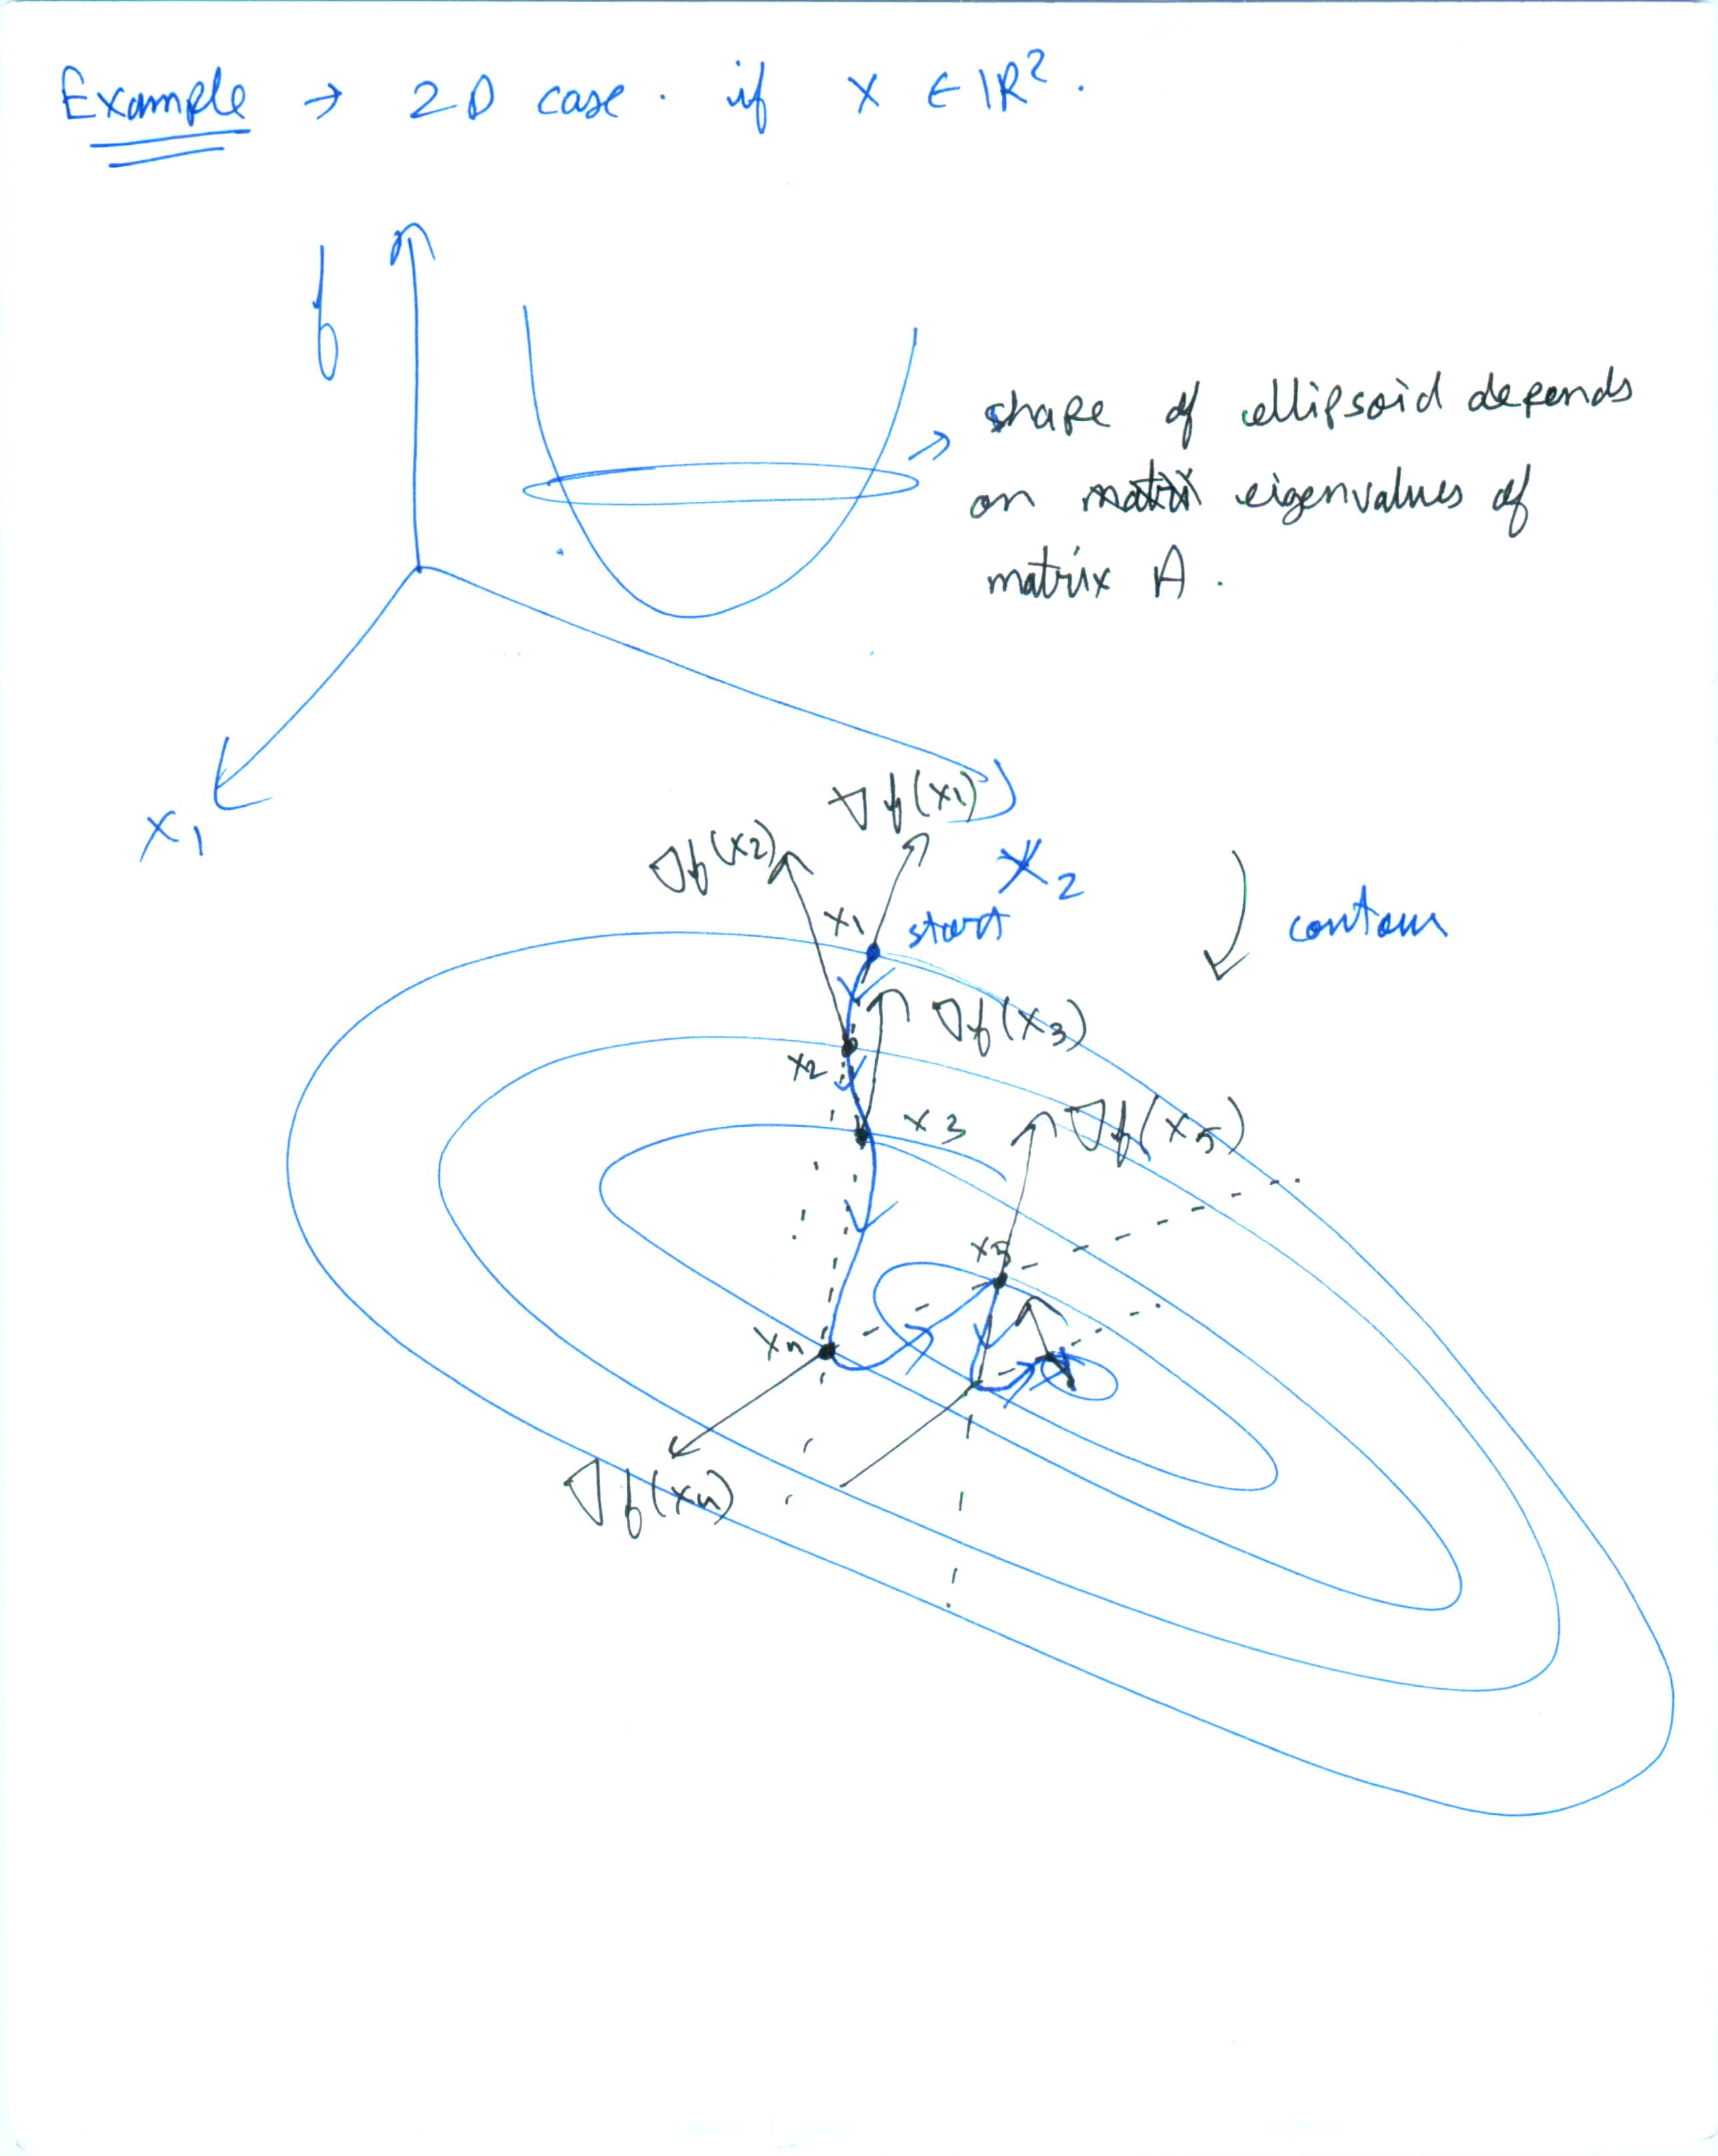 Example → 2D case. if X ∈ ℝ².
f
shape of ellipsoid depends
on eigenvalues of
matrix A.
x₁
∇f(x₁)
∇f(x₂)
x₂
x₁ start
contour
∇f(x₃)
x₂
x₃
∇f(x₅)
x₅
x₄
∇f(x₄)